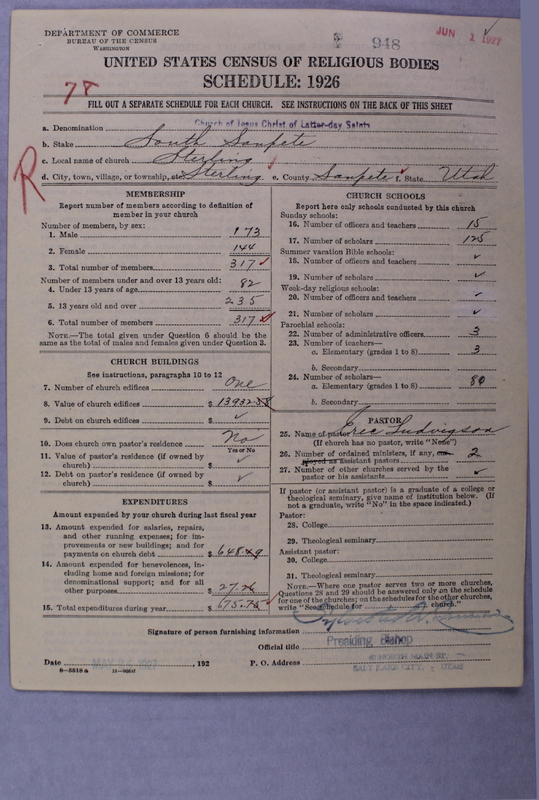 DEPARTMENT OF COMMERCE
BUREAU OF THE CENSUS
WASHINGTON
948
JUN 1 1927
UNITED STATES CENSUS OF RELIGIOUS BODIES
SCHEDULE: 1926
FILL OUT A SEPARATE SCHEDULE FOR EACH CHURCH. SEE INSTRUCTIONS ON THE BACK OF THIS SHEET
R
a. Denomination Church of Jesus Christ of Latter-day Saints
b. Stake South Sanpete
c. Local name of church Sterling
d. City, town, village, or township, etc. Sterling e. County Sanpete f. State Utah
MEMBERSHIP
Report number of members according to definition of member in your church
Number of members, by sex:
1. Male 173
2. Female 144
3. Total number of members 317
Number of members under and over 13 years old:
4. Under 13 years of age 82
5. 13 years old and over 235
6. Total number of members 317
NOTE.—The total given under Question 6 should be the same as the total of males and females given under Question 3.
CHURCH BUILDINGS
See instructions, paragraphs 10 to 12
7. Number of church edifices One
8. Value of church edifices $ 13932.58
9. Debt on church edifices $ ✓
10. Does church own pastor's residence No
Yes or No
11. Value of pastor's residence (if owned by church) $ ✓
12. Debt on pastor's residence (if owned by church) $ ✓
EXPENDITURES
Amount expended by your church during last fiscal year
13. Amount expended for salaries, repairs, and other running expenses; for improvements or new buildings; and for payments on church debt $ 648.49
14. Amount expended for benevolences, including home and foreign missions; for denominational support; and for all other purposes $ 27.26
15. Total expenditures during year $ 675.75
CHURCH SCHOOLS
Report here only schools conducted by this church
Sunday schools:
16. Number of officers and teachers 15
17. Number of scholars 125
Summer vacation Bible schools:
18. Number of officers and teachers ✓
19. Number of scholars ✓
Week-day religious schools:
20. Number of officers and teachers ✓
21. Number of scholars ✓
Parochial schools:
22. Number of administrative officers 3
23. Number of teachers—
a. Elementary (grades 1 to 8) 3
b. Secondary
24. Number of scholars—
a. Elementary (grades 1 to 8) 80
b. Secondary
PASTOR
25. Name of pastor Eric Ludvigson
(If church has no pastor, write "None")
26. Number of ordained ministers, if any, employed as assistant pastors 2
27. Number of other churches served by the pastor or his assistants ✓
If pastor (or assistant pastor) is a graduate of a college or theological seminary, give name of institution below. (If not a graduate, write "No" in the space indicated.)
Pastor:
28. College
29. Theological seminary
Assistant pastor:
30. College
31. Theological seminary
NOTE.—Where one pastor serves two or more churches, Questions 28 and 29 should be answered only on the schedule for one of the churches; on the schedules for the other churches, write "See schedule for church."
Signature of person furnishing information
Official title Presiding Bishop
Date MAY 1927, 192 P. O. Address 40 NORTH MAIN ST.
SALT LAKE CITY, UTAH